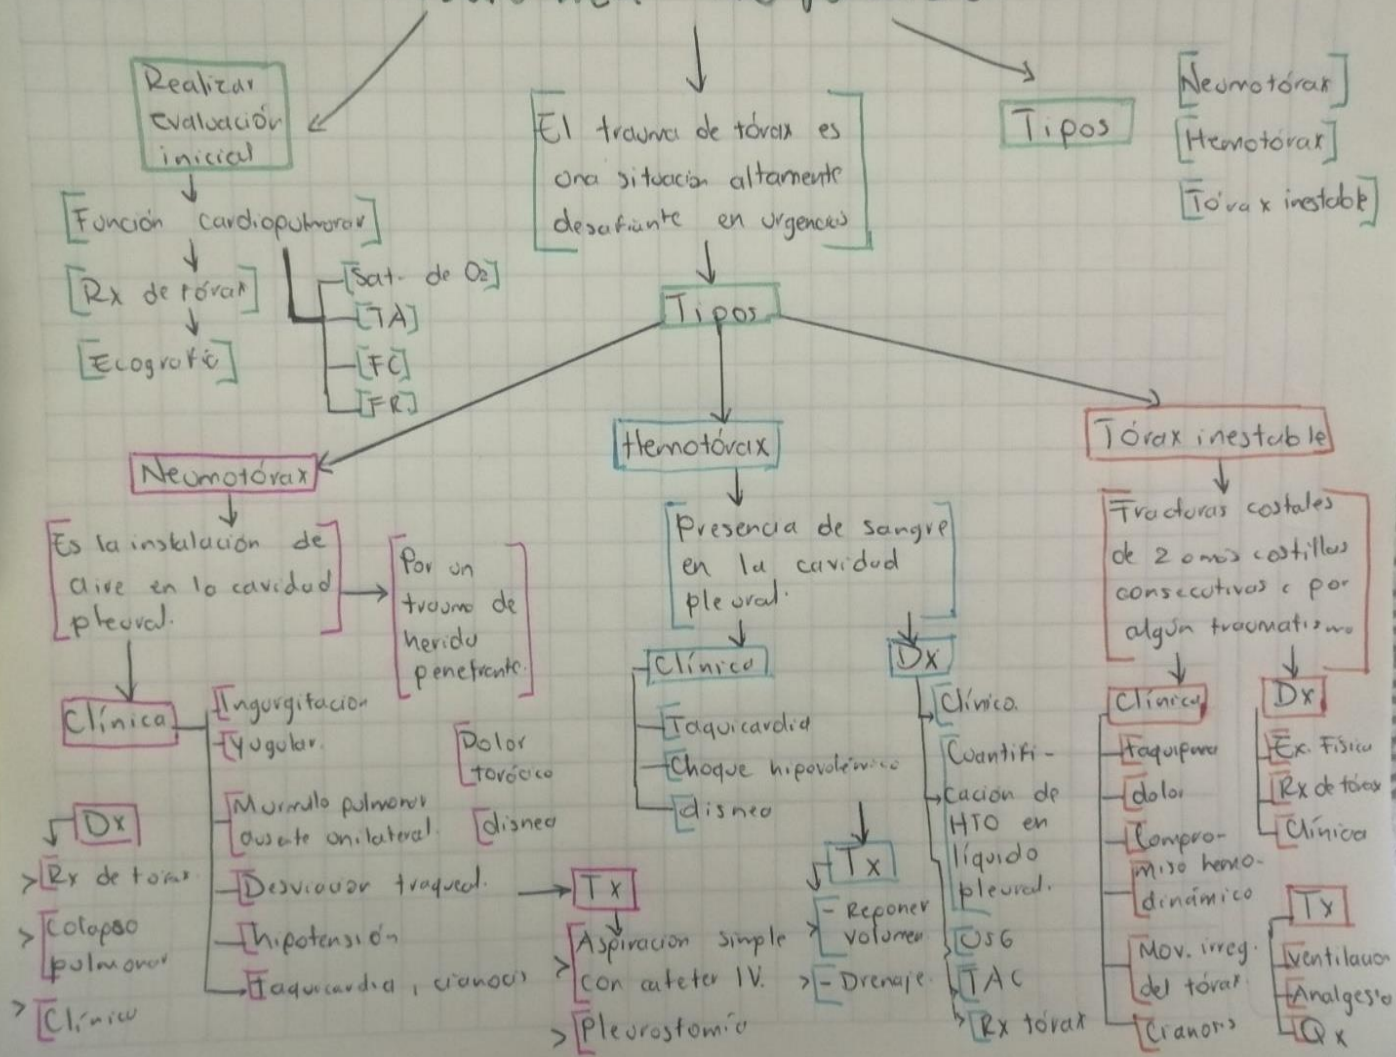 Realizar
evaluación
inicial
[Función cardiopulmonar]
[Rx de tórax]
[Ecografía]
[Sat. de O2]
[TA]
[FC]
[FR]
El trauma de tórax es
una situación altamente
desafiante en urgencias
Tipos
[Neumotórax]
[Hemotórax]
[Tórax inestable]
Tipos
Neumotórax
Es la instalación de
aire en la cavidad
pleural.
Por un
trauma de
herida
penetrante.
Clínica
Ingurgitación
yugular.
Dolor
torácico
Murmullo pulmonar
ausente unilateral.
disnea
traqueal.
hipotensión
Taquicardia, cianosis
Dx
> Rx de tórax
> Colapso
pulmonar
> Clínica
Tx
> Aspiración simple
con cateter IV.
> Pleurostomía
Hemotórax
Presencia de sangre
en la cavidad
pleural.
Clínica
Taquicardia
Choque hipovolémico
disnea
Dx
Clínica.
Cuantifi-
cación de
HTO en
líquido
pleural.
USG
TAC
Rx tórax
Tx
- Reponer
volumen
- Drenaje.
Tórax inestable
Fracturas costales
de 2 o más costillas
consecutivas por
algún traumatismo
Clínica
taquipnea
dolor
Compro-
miso hemo-
dinámico
Mov. irreg.
del tórax
Cianosis
Dx
Ex. Físico
Rx de tórax
Clínica
Tx
Ventilación
Analgesia
Qx